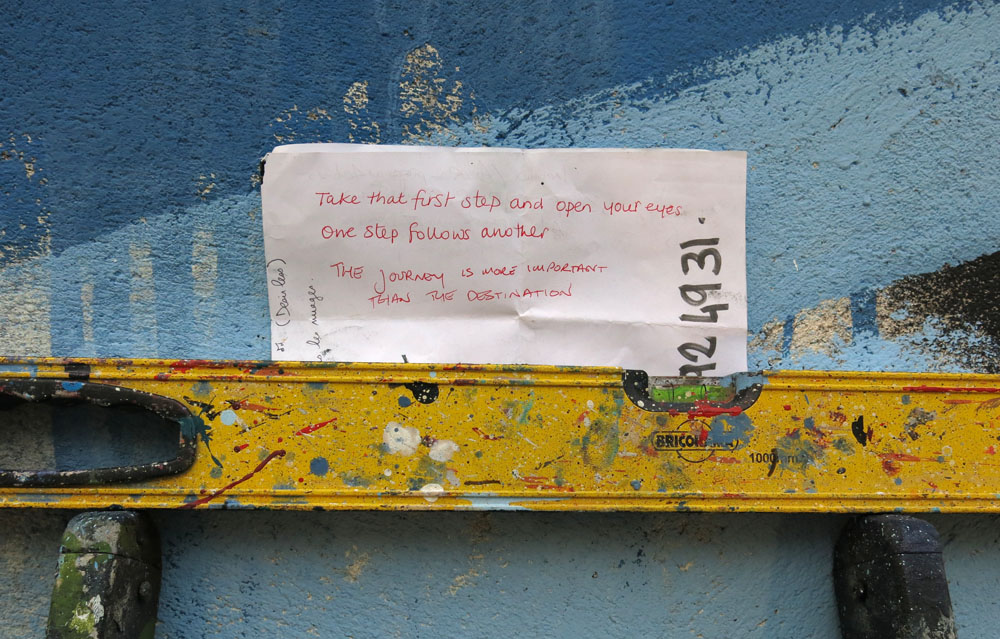 Take that first step and open your eyes
One step follows another
THE JOURNEY IS MORE IMPORTANT
THAN THE DESTINATION
(Deux lies)
les nuages
92 4931.
BRICO
1000mm